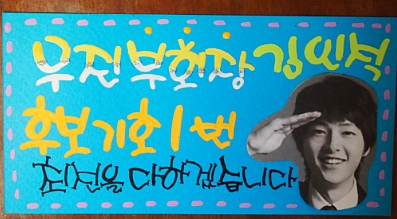 우진부회장 김민석
후보기호 1번
최선을 다하겠습니다